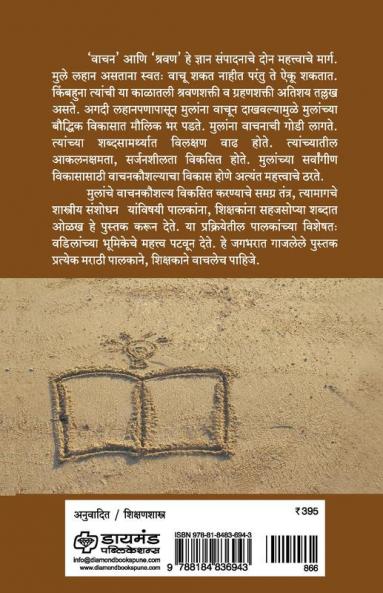 'वाचन' आणि 'श्रवण' हे ज्ञान संपादनाचे दोन महत्त्वाचे मार्ग.
मुले लहान असताना स्वतः वाचू शकत नाहीत परंतु ते ऐकू शकतात.
किंबहुना त्यांची या काळातली श्रवणशक्ती व ग्रहणशक्ती अतिशय तल्लख
असते. अगदी लहानपणापासून मुलांना वाचून दाखवल्यामुळे मुलांच्या
बौद्धिक विकासात मौलिक भर पडते. मुलांना वाचनाची गोडी लागते.
त्यांच्या शब्दसामर्थ्यात विलक्षण वाढ होते. त्यांच्यातील
आकलनक्षमता, सर्जनशीलता विकसित होते. मुलांच्या सर्वांगीण
विकासासाठी वाचनकौशल्याचा विकास होणे अत्यंत महत्त्वाचे ठरते.
मुलांचे वाचनकौशल्य विकसित करण्याचे समग्र तंत्र, त्यामागचे
शास्त्रीय संशोधन यांविषयी पालकांना, शिक्षकांना सहजसोप्या शब्दात
ओळख हे पुस्तक करून देते. या प्रक्रियेतील पालकांच्या विशेषतः
वडिलांच्या भूमिकेचे महत्त्व पटवून देते. हे जगभरात गाजलेले पुस्तक
प्रत्येक मराठी पालकाने, शिक्षकाने वाचलेच पाहिजे.
अनुवादित / शिक्षणशास्त्र
₹ 395
डायमंड
पब्लिकेशन्स
info@diamondbookspune.com
www.diamondbookspune.com
ISBN 978-81-8483-694-3
9 788184 836943
866